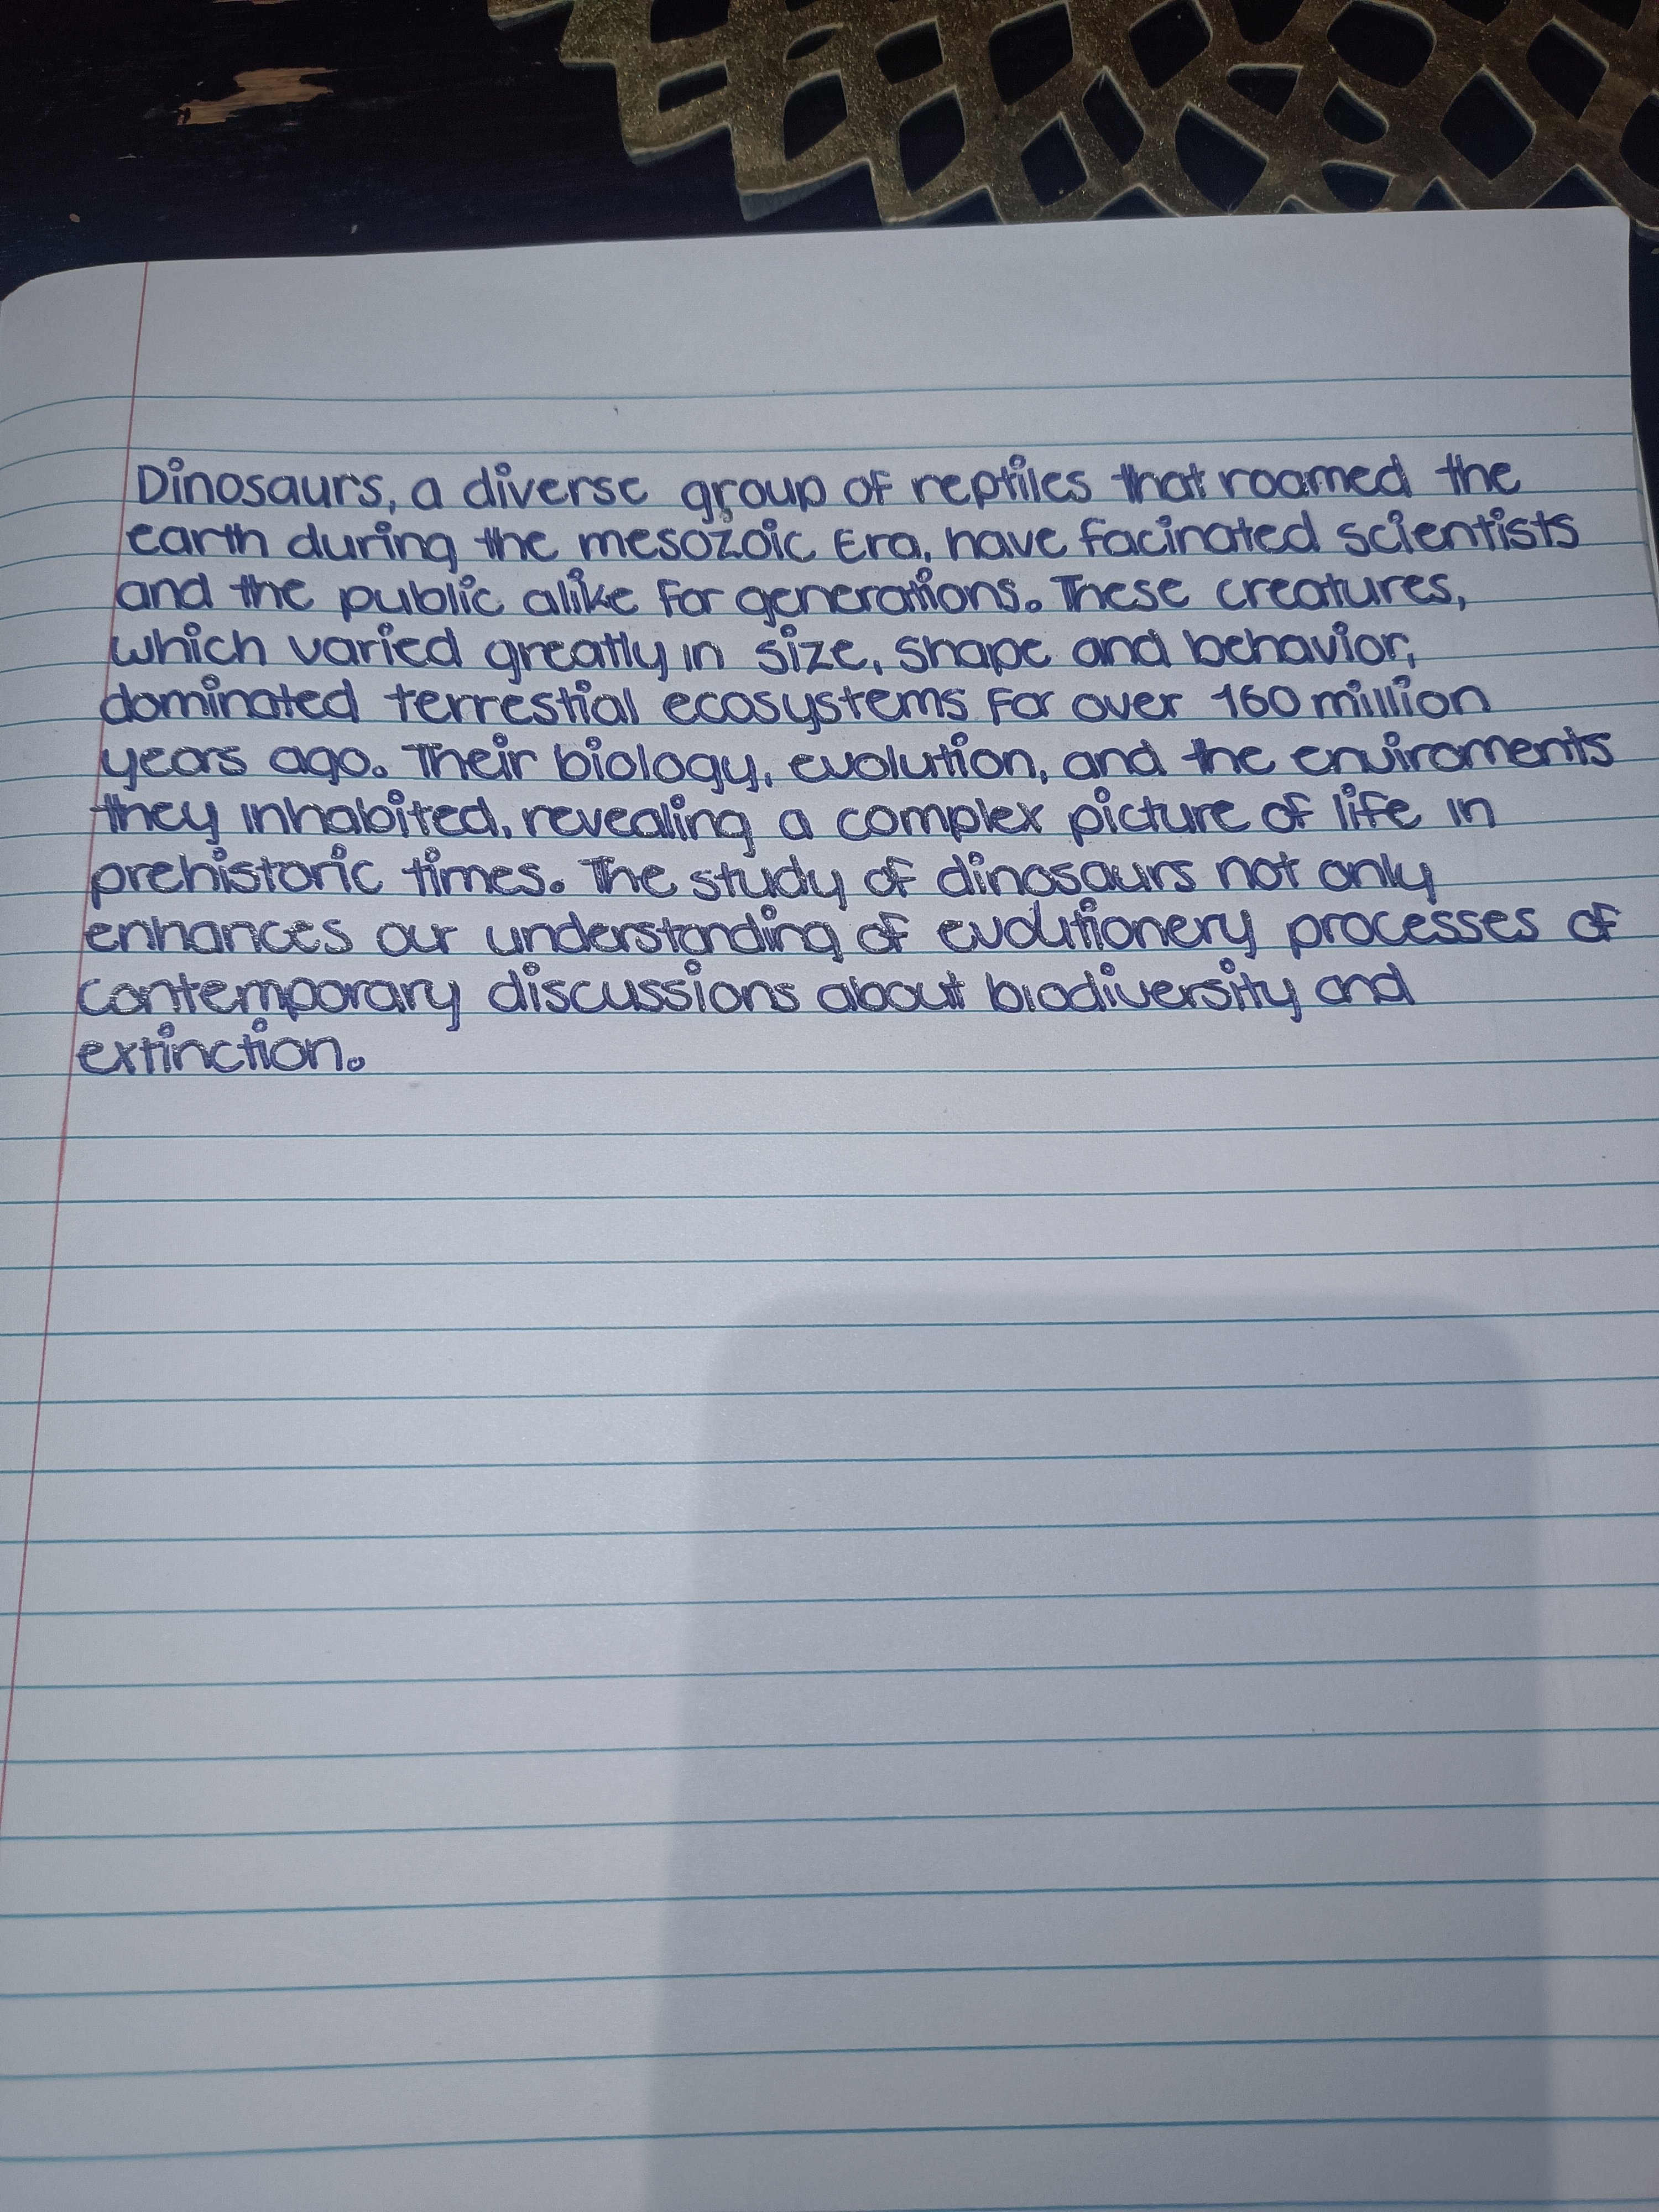 Dinosaurs, a diverse group of reptiles that roamed the
earth during the mesozoic Era, have facinated scientists
and the public alike for generations. These creatures,
which varied greatly in size, shape and behavior,
dominated terrestial ecosystems for over 160 million
years ago. Their biology, evolution, and the enviroments
they inhabited, revealing a complex picture of life in
prehistoric times. The study of dinosaurs not only
enhances our understanding of evolutionery processes of
contemporary discussions about biodiversity and
extinction.